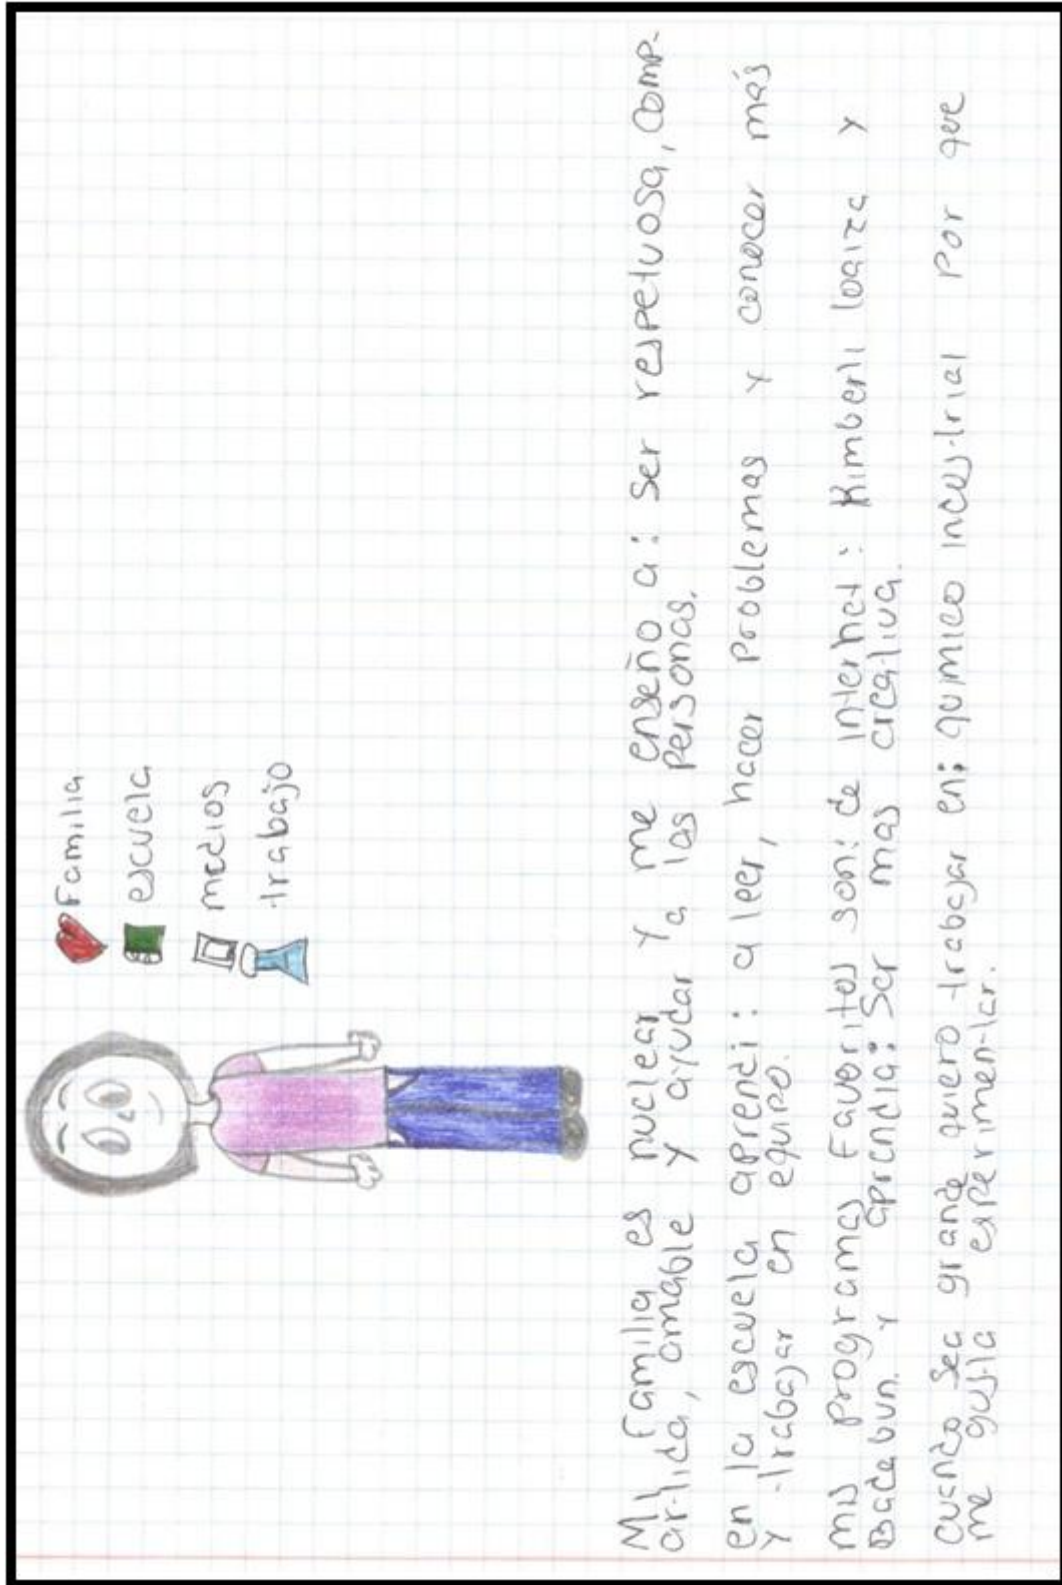 Familia
escuela
medios
trabajo
Mi Familia es nuclear y me enseño a: ser respetuosa, comp-
artida, amable y ayudar a las personas.
en la escuela aprendi: a leer, hacer problemas y conocer más
y trabajar en equipo.
mis programas Favoritos son: de internet: Kimberli loaiza y
Badabun. y aprendia: Ser mas creativa.
cuando sea grande quiero trabajar en: quimico incustrial Por que
me gusta experimentar.